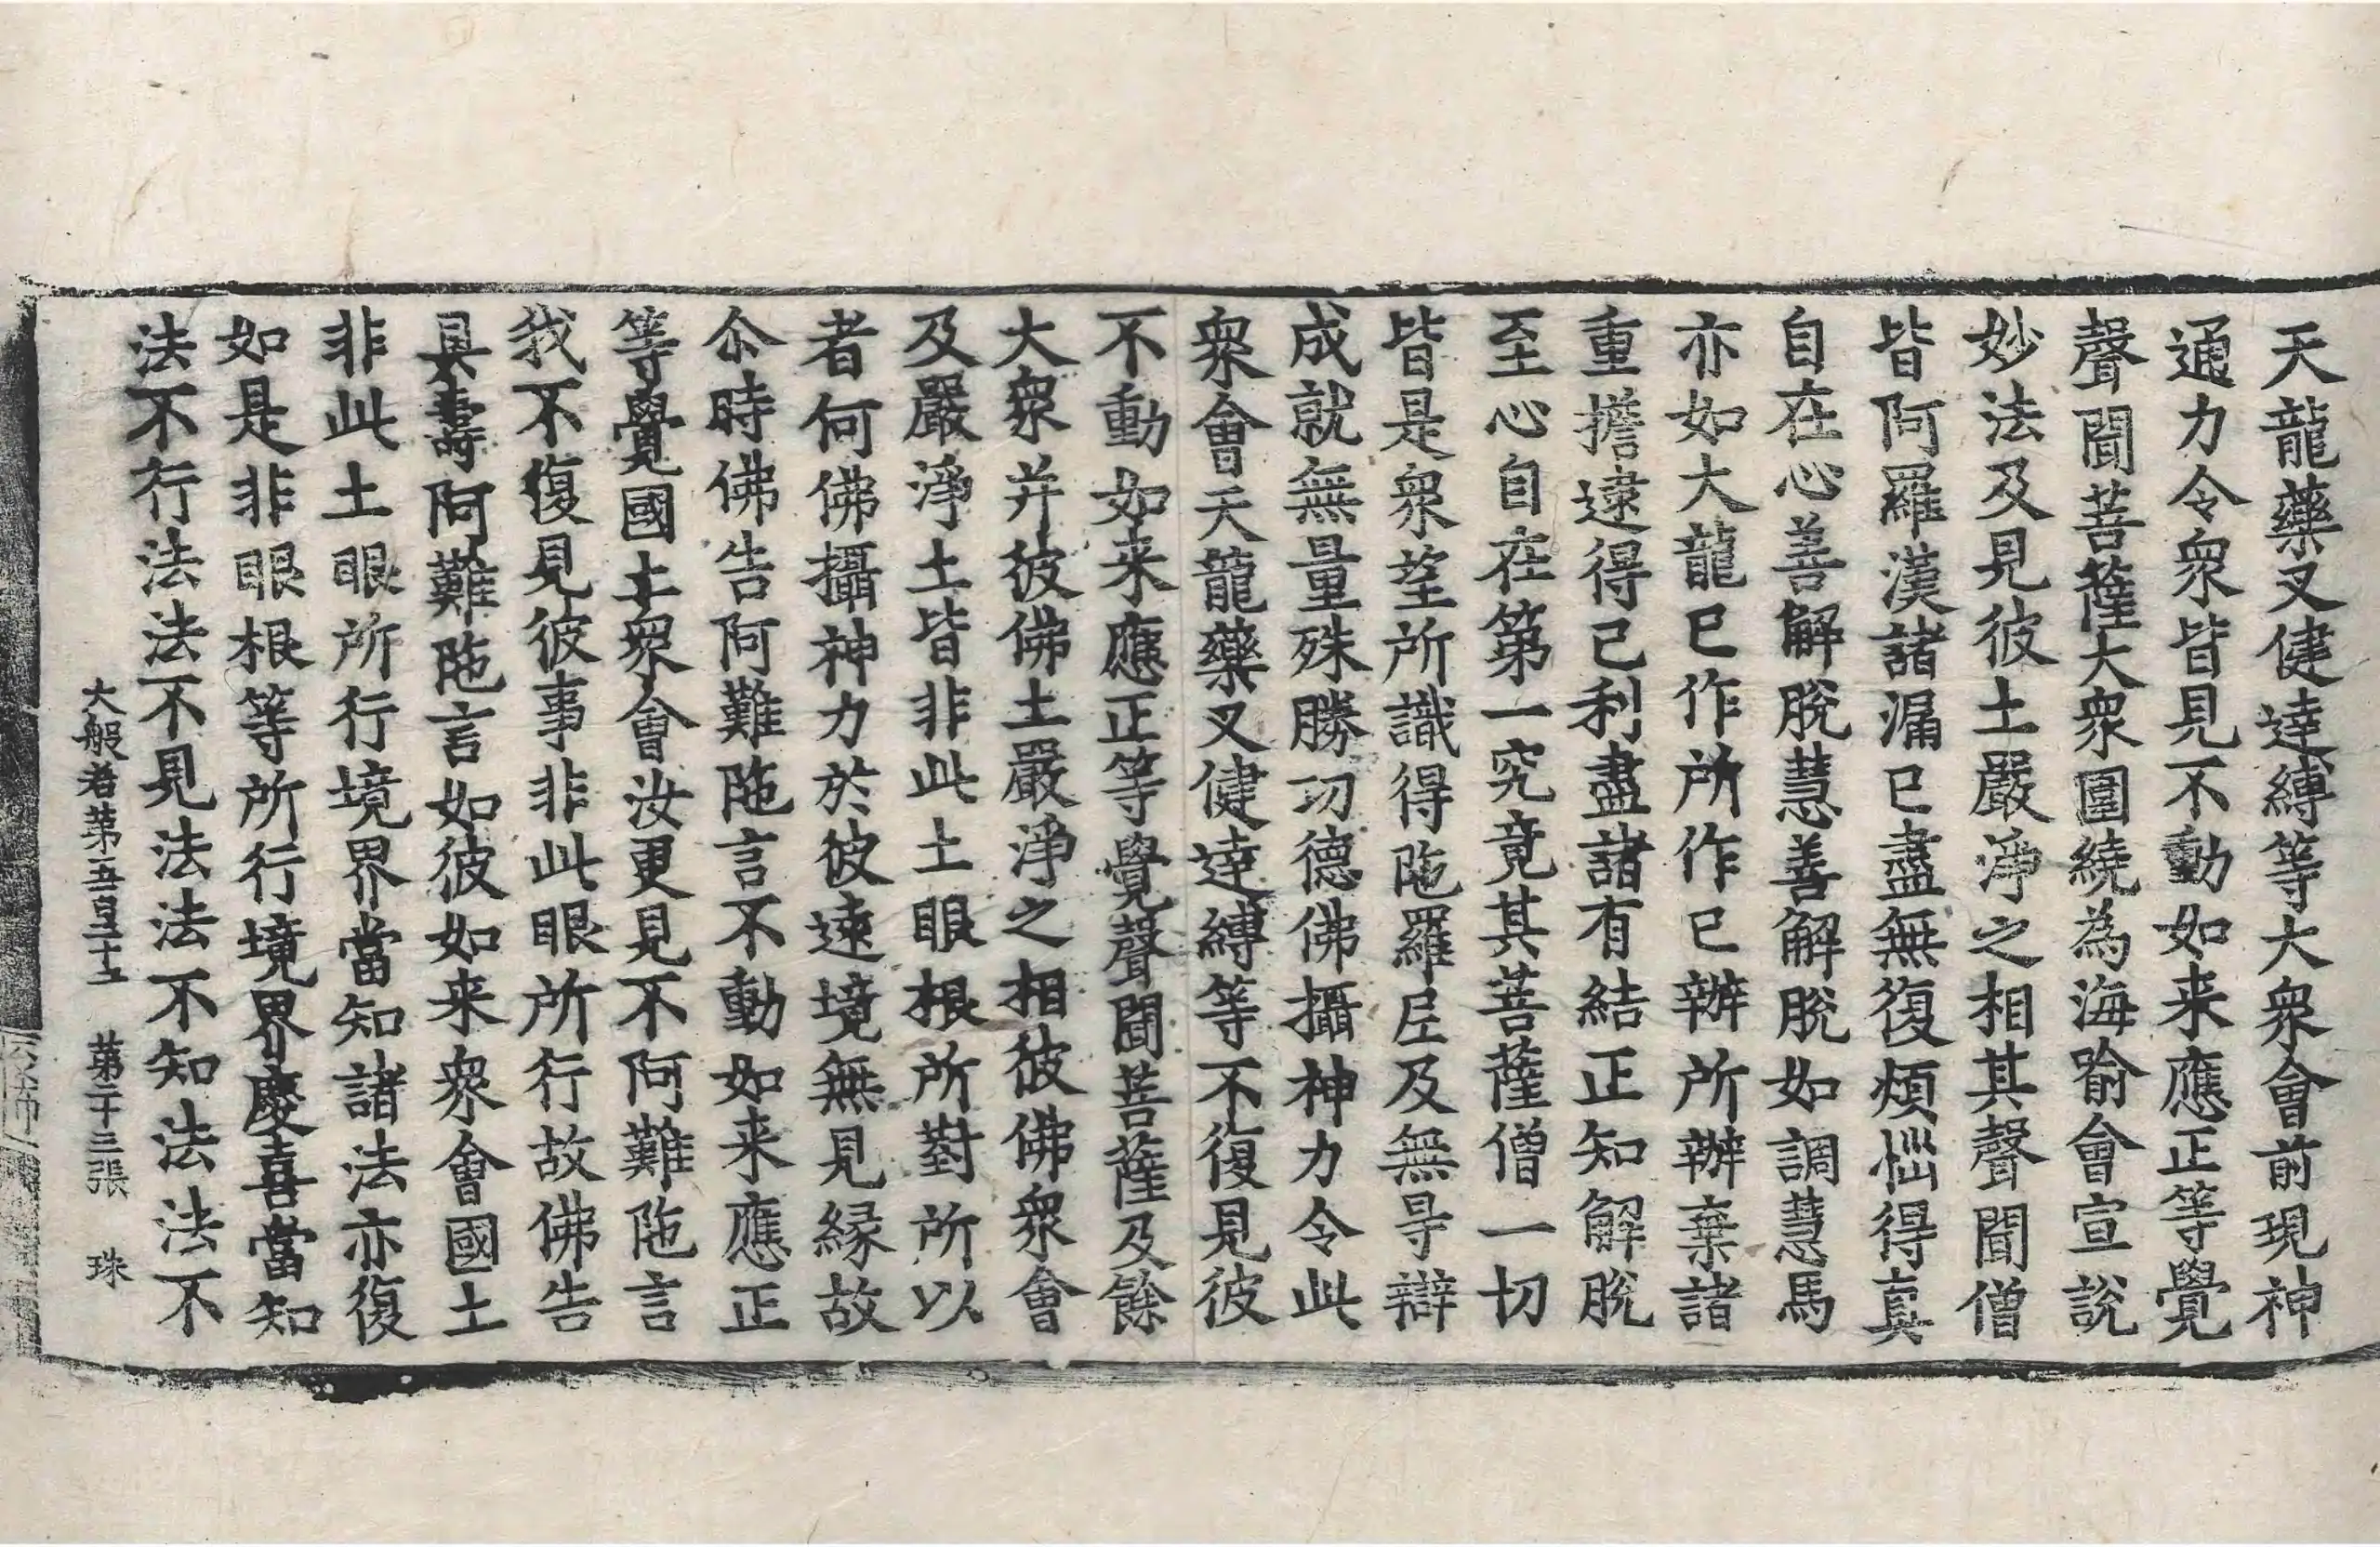 天龍藥叉健達縛等大衆會前現神
通力令衆皆見不動如来應正等覺
聲聞菩薩大衆圍繞為海喻會宣說
妙法及見彼土嚴淨之相其聲聞僧
皆阿羅漢諸漏已盡無復煩惱得真
自在心善解脫慧善解脫如調慧馬
亦如大龍已作所作已辦所辦棄諸
重擔逮得己利盡諸有結正知解脫
至心自在第一究竟其菩薩僧一切
皆是衆望所識得陁羅尼及無㝵辯
成就無量殊勝功德佛攝神力令此
衆會天龍藥叉健達縛等不復見彼
不動如来應正等覺聲聞菩薩及餘
大衆并彼佛土嚴淨之相彼佛衆會
及嚴淨土皆非此土眼根所對所以
者何佛攝神力於彼遠境無見緣故
尒時佛告阿難陁言不動如来應正
等覺國土衆會汝更見不阿難陁言
我不復見彼事非此眼所行故佛告
具壽阿難陁言如彼如来衆會國土
非此土眼所行境界當知諸法亦復
如是非眼根等所行境界慶喜當知
法不行法法不見法法不知法法不
大般若第五百五十五 第二十三張 珠